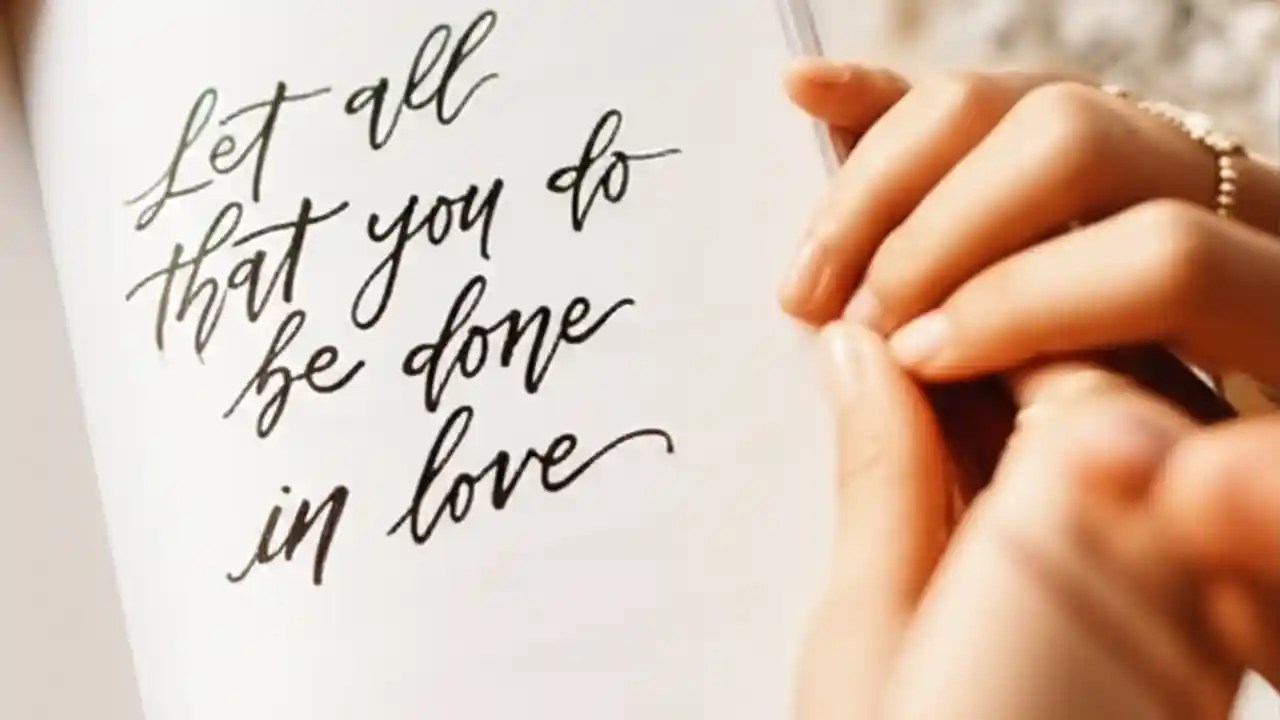 Let all
that you do
be done
in love